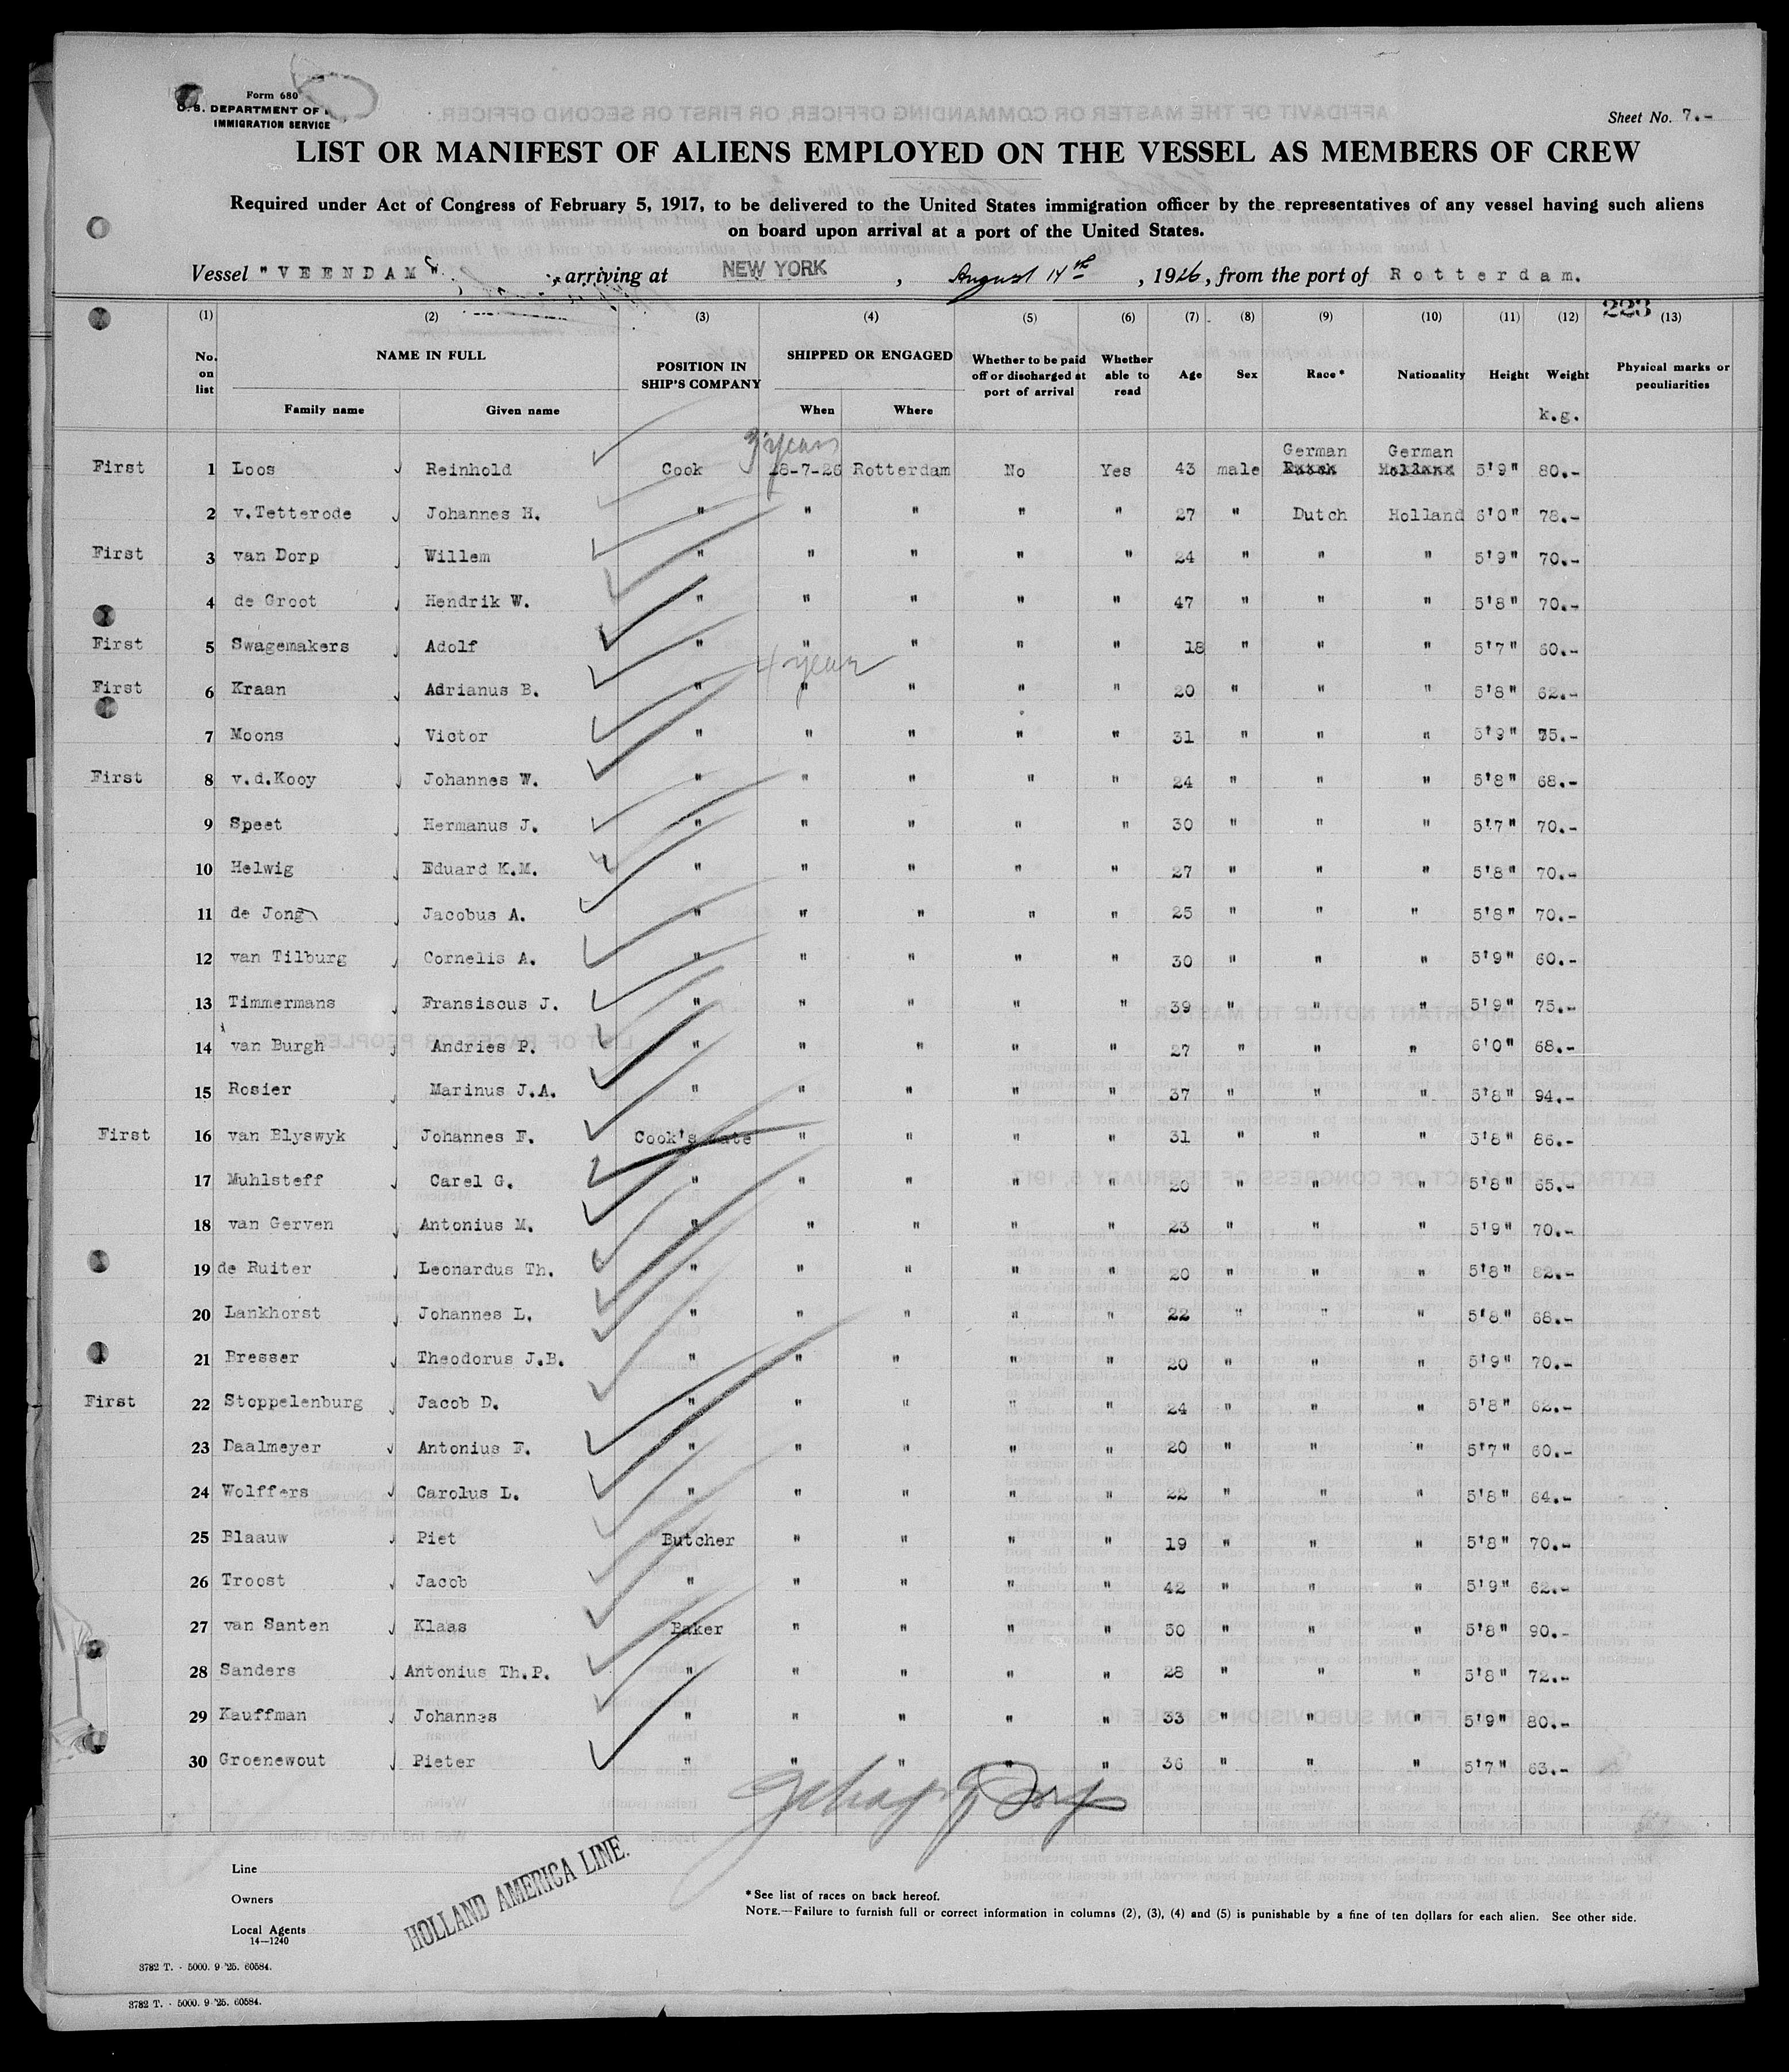 Form 680
U. S. DEPARTMENT OF
IMMIGRATION SERVICE
Sheet No. 7.-
LIST OR MANIFEST OF ALIENS EMPLOYED ON THE VESSEL AS MEMBERS OF CREW
Required under Act of Congress of February 5, 1917, to be delivered to the United States immigration officer by the representatives of any vessel having such aliens
on board upon arrival at a port of the United States.
Vessel "VEENDAM", arriving at NEW YORK, August 14th, 1926, from the port of Rotterdam.
223
(1) (2) (3) (4) (5) (6) (7) (8) (9) (10) (11) (12) (13)
No. on list NAME IN FULL Family name Given name POSITION IN SHIP'S COMPANY SHIPPED OR ENGAGED When Where Whether to be paid off or discharged at port of arrival Whether able to read Age Sex Race* Nationality Height Weight Physical marks or peculiarities
k.g.
3 years German German
First 1 Loos Reinhold Cook 28-7-26 Rotterdam No Yes 43 male Dutch Holland 5'9" 80.-
2 v.Tetterode Johannes H. " " " " " 27 " Dutch Holland 6'0" 78.-
First 3 van Dorp Willem " " " " " 24 " " " 5'9" 70.-
4 de Groot Hendrik W. " " " " " 47 " " " 5'8" 70.-
First 5 Swagemakers Adolf " " " " " 18 " " " 5'7" 60.-
4 year
First 6 Kraan Adrianus B. " " " " " 20 " " " 5'8" 62.-
7 Moons Victor " " " " " 31 " " " 5'9" 75.-
First 8 v.d.Kooy Johannes W. " " " " " 24 " " " 5'8" 68.-
9 Speet Hermanus J. " " " " " 30 " " " 5'7" 70.-
10 Helwig Eduard K.M. " " " " " 27 " " " 5'8" 70.-
11 de Jong Jacobus A. " " " " " 25 " " " 5'8" 70.-
12 van Tilburg Cornelis A. " " " " " 30 " " " 5'9" 60.-
13 Timmermans Fransiscus J. " " " " " 39 " " " 5'9" 75.-
14 van Burgh Andries P. " " " " " 27 " " " 6'0" 68.-
15 Rosier Marinus J.A. " " " " " 37 " " " 5'8" 94.-
First 16 van Blyswyk Johannes F. Cook's mate " " " " 31 " " " 5'8" 86.-
17 Muhlsteff Carel G. " " " " " 20 " " " 5'8" 65.-
18 van Gerven Antonius M. " " " " " 23 " " " 5'9" 70.-
19 de Ruiter Leonardus Th. " " " " " 20 " " " 5'8" 82.-
20 Lankhorst Johannes L. " " " " " 22 " " " 5'8" 68.-
21 Bresser Theodorus J.B. " " " " " 20 " " " 5'9" 70.-
First 22 Stoppelenburg Jacob D. " " " " " 24 " " " 5'8" 62.-
23 Daalmeyer Antonius F. " " " " " 20 " " " 5'7" 60.-
24 Wolffers Carolus L. " " " " " 22 " " " 5'8" 64.-
25 Blaauw Piet Butcher " " " " 19 " " " 5'8" 70.-
26 Troost Jacob " " " " " 42 " " " 5'9" 62.-
27 van Santen Klaas Baker " " " " 50 " " " 5'8" 90.-
28 Sanders Antonius Th.P. " " " " " 28 " " " 5'8" 72.-
29 Kauffman Johannes " " " " " 33 " " " 5'9" 80.-
30 Groenewout Pieter " " " " " 36 " " " 5'7" 63.-
Line
Owners
Local Agents
14—1240
HOLLAND AMERICA LINE.
*See list of races on back hereof.
NOTE.—Failure to furnish full or correct information in columns (2), (3), (4) and (5) is punishable by a fine of ten dollars for each alien. See other side.
3782 T. - 5000. 9-'25. 60584.
3782 T. - 5000. 9-'25. 60584.